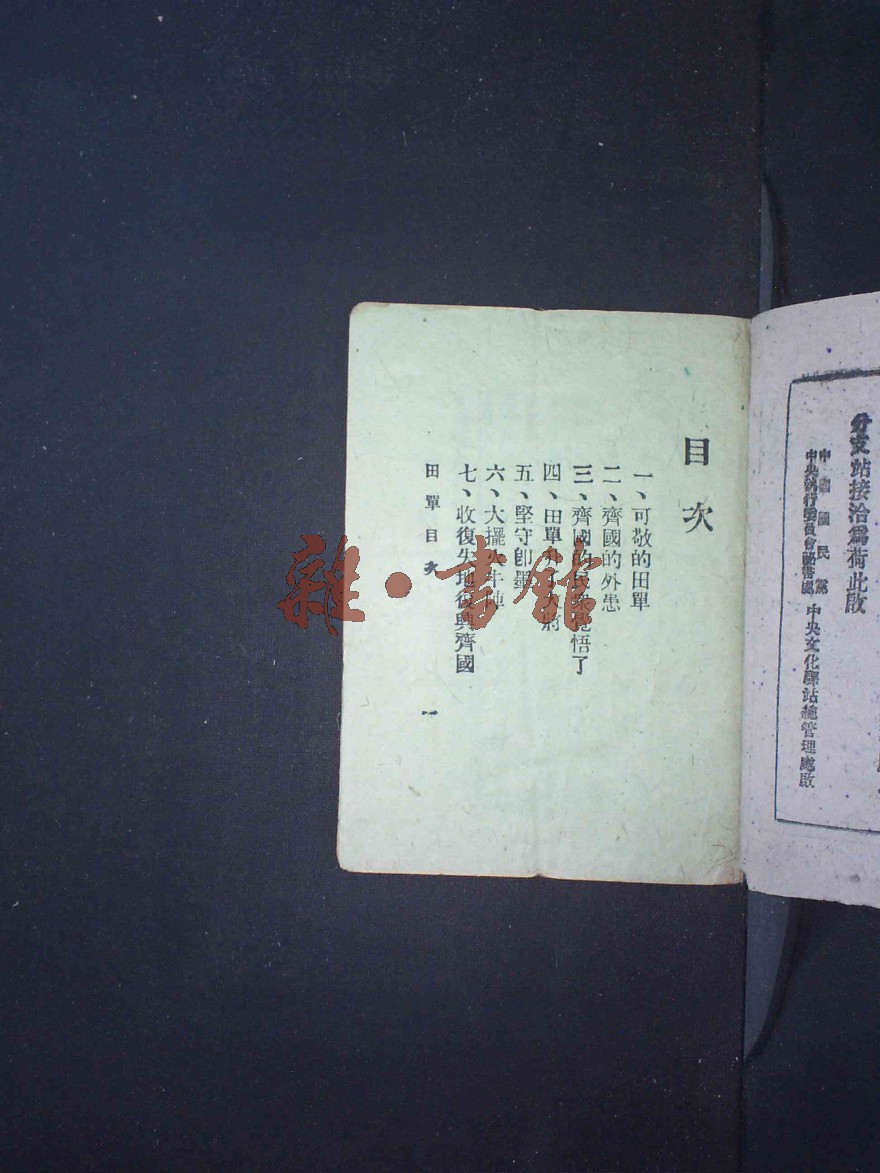 分支站接洽爲荷此啟
中國國民黨
中央執行委員會秘書處
中央文化驛站總管理處啟
目次
一、可敬的田單
二、齊國的外患
三、齊國的民衆覺悟了
四、田單 大將
五、堅守卽墨
六、大擺火牛陣
七、收復失地復興齊國
田單目次
一
雜·書館